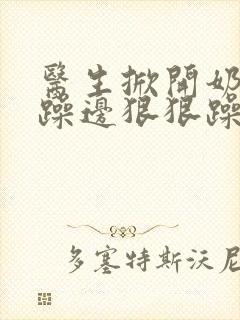 醫生掀開奶
躁邊狠狠躁
多塞特斯沃尼